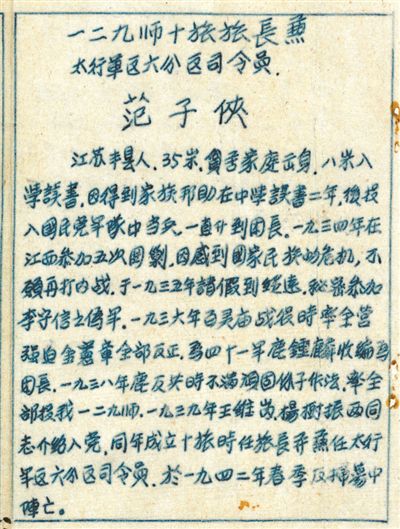 一二九师十旅旅長兼
太行軍区六分区司令員.
范子俠
江苏丰县人.35岁.貧苦家庭出身.八岁入
學讀書.因得到家族邦助在中學讀書二年,後投
入國民党军隊中当兵.一直升到团長.一九三四年在
江西参加五次围剿.因感到國家民族的危机,不
願再打内战.于一九三五年請假到綏遠.秘密参加
李子信之偽军.一九三六年百灵庙战役時率全营
强迫金憲章全部反正.為四十一军鹿鍾麟收编為
团長.一九三八年鹿反共時不满頑固份子作法.率全
部投我一二九师.一九三九年王維岗.楊樹振两同
志介绍入党.同年成立十旅時任旅長并兼任太行
军区六分区司令員.於一九四二年春季反掃蕩中
陣亡。